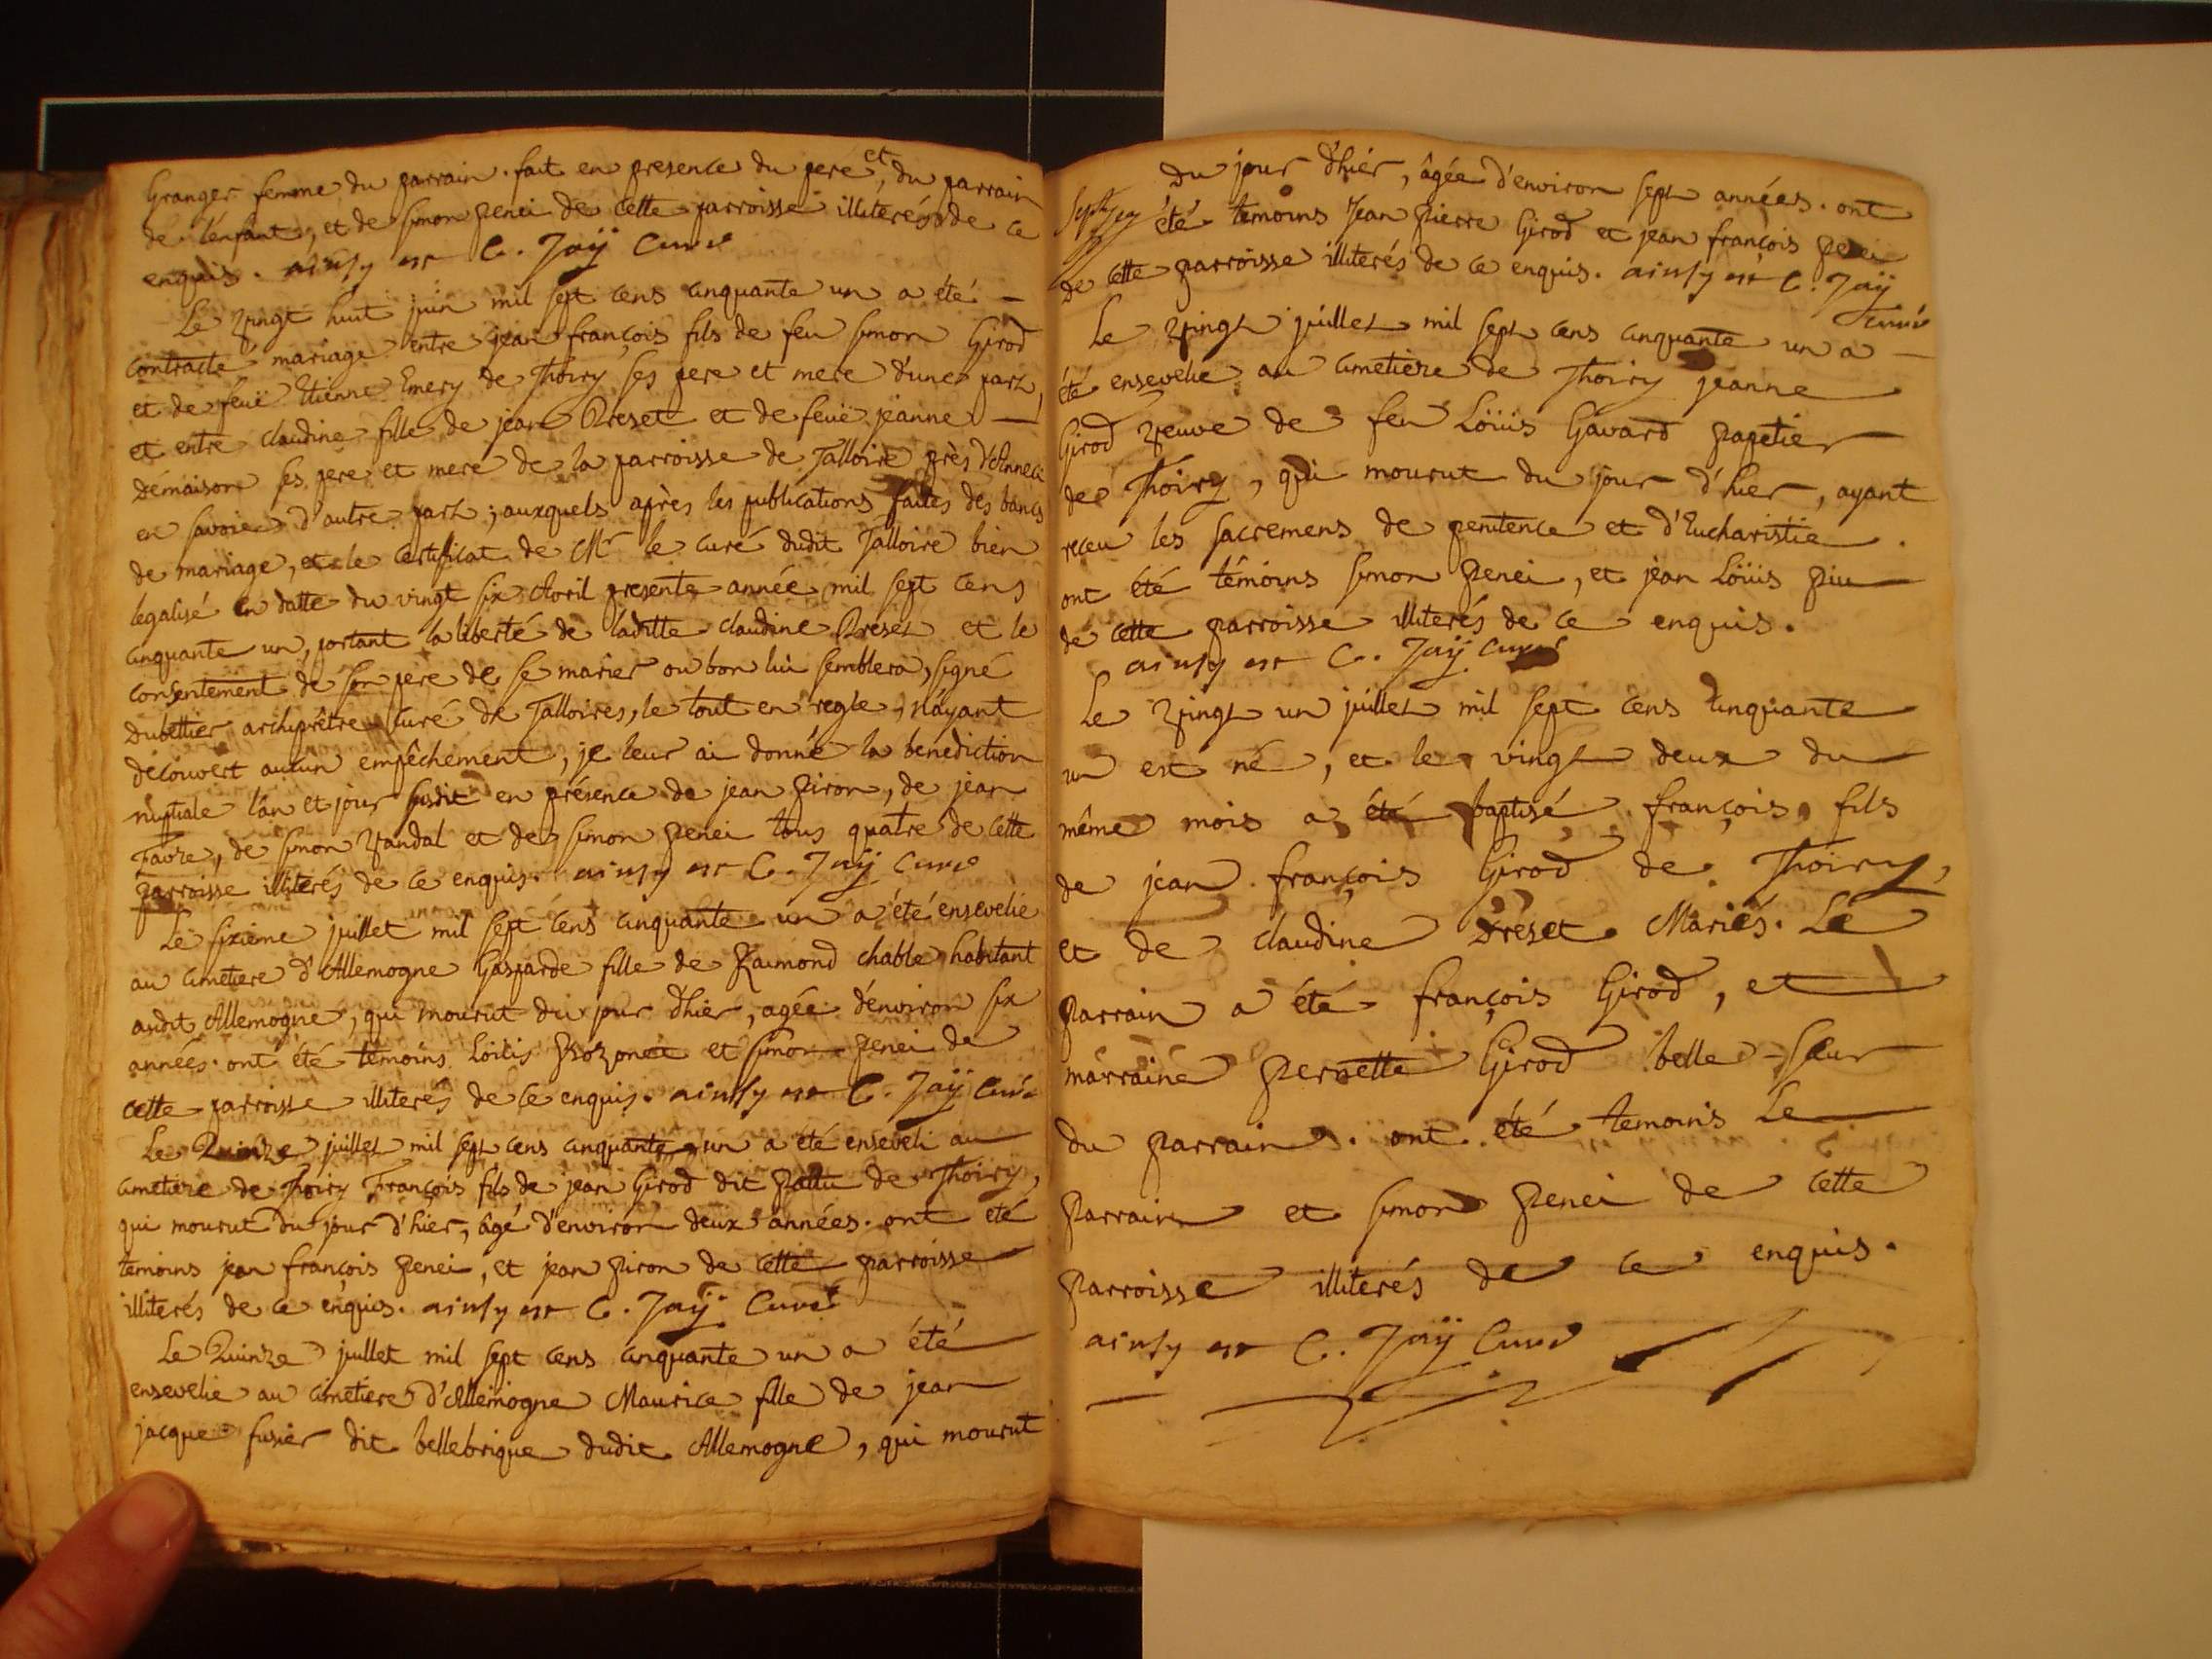 Granger femme du parrain. fait en presence du pere, et du parrain
de l'enfant, et de simon penei de cette parroisse illiterés de ce
enquis. ainsy est C. Jaÿ Curé
Le vingt huit juin mil sept cens cinquante un a été
contracté mariage entre jean françois fils de feu simon Girod
et de feuë Etienne Emery de Thoiry ses pere et mere d'une part,
et entre claudine fille de jean Dreset et de feuë jeanne
démaison ses pere et mere de la parroisse de Talloire près d'Anneci
en savoie d'autre part; auxquels après les publications faites des bancs
de mariage, et le certificat de Mr le curé dudit Talloire bien
legalisé en datte du vingt six Avril presente année mil sept cens
cinquante un, portant la liberté de laditte claudine Dreset et le
consentement de son pere de se marier ou bon lui semblera, signé
Dubettier archiprêtre curé de Talloires, le tout en regle, n'ayant
découvert aucun empêchement, je leur ai donné la benediction
nuptiale l'an et jour susdit en présence de jean piron, de jean
Favre, de simon vandal et de simon penei tous quatre de cette
parroisse illiterés de ce enquis. ainsy est C. Jaÿ Curé
Le sixieme juillet mil sept cens cinquante un a été ensevelie
au cimetiere d'Allemogne Gasparde fille de Raimond chable habitant
audit Allemogne, qui mourut du jour d'hier, agée d'environ six
années. ont été temoins Loüis et simon penei de
cette parroisse illiterés de ce enquis. ainsy est C. Jaÿ Curé
Le Quinze juillet mil sept cens cinquante un a été enseveli au
cimetiere de Thoiry François fils de jean Girod dit pattu de Thoiry,
qui mourut du jour d'hier, âgé d'environ deux années. ont été
temoins jean françois penei, et jean piron de cette parroisse
illiterés de ce enquis. ainsy est C. Jaÿ Curé
Le Quinze juillet mil sept cens cinquante un a été
ensevelie au cimetiere d'Allemogne Maurice fille de jean
jacque fusier dit bellebrique dudit Allemogne, qui mourut
du jour d'hier, âgée d'environ sept années. ont
été temoins Jean pierre Girod et jean françois penei
de cette parroisse illiterés de ce enquis. ainsy est C. Jaÿ
Curé
Le vingt juillet mil sept cens cinquante un a
été ensevelie au cimetiere de Thoiry jeanne
Girod veuve de feu Loüis Gavard papetier
de Thoiry, qui mourut du jour d'hier, ayant
receu les sacremens de penitence et d'Eucharistie.
ont été témoins simon penei, et jean Loüis piu
de cette parroisse illiterés de ce enquis.
ainsy est C. Jaÿ Curé
Le vingt un juillet mil sept cens cinquante
un est né, et le vingt deux du
même mois a été baptisé françois, fils
de jean françois Girod de Thoiry,
et de claudine Dreset Mariés. Le
parrain a été françois Girod, et
marraine pernette Girod belle-sœur
du parrain. ont été temoins Le
parrain et simon penei de cette
parroisse illiterés de ce enquis.
ainsy est C. Jaÿ Curé